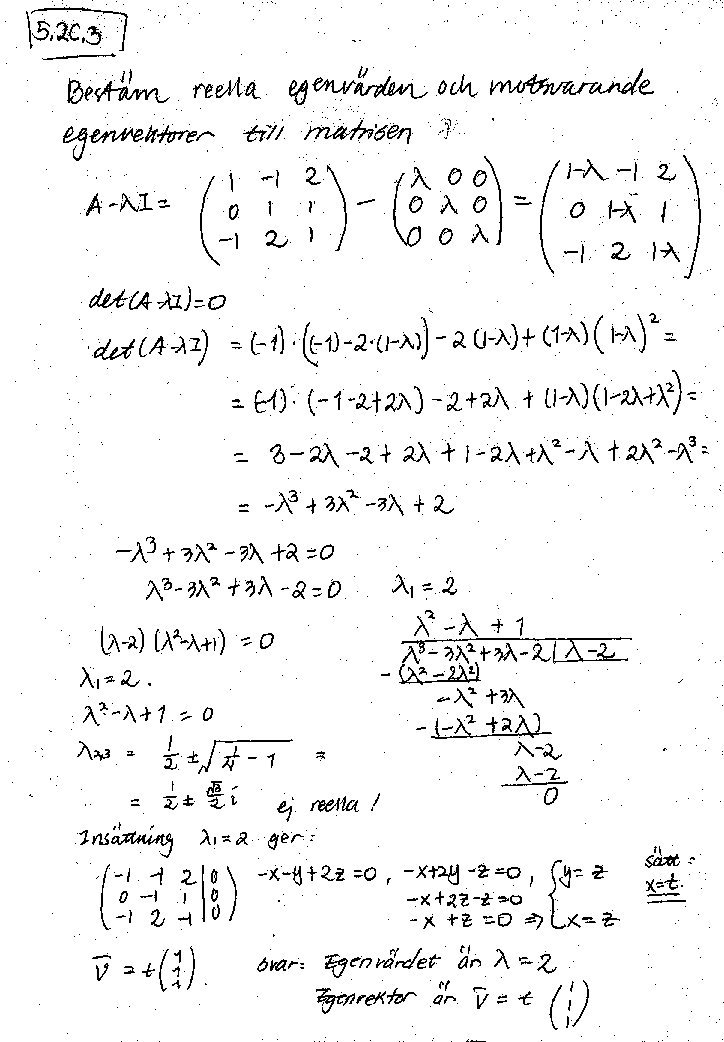 5.20.3
Bestäm reella egenvärden och motsvarande
egenvektorer till matrisen
A-λI = (1 -1 2; 0 1 1; -1 2 1) - (λ 0 0; 0 λ 0; 0 0 λ) = (1-λ -1 2; 0 1-λ 1; -1 2 1-λ)
det(A-λI)=0
det(A-λI) = (-1)·((-1)-2·(1-λ)) - 2(1-λ) + (1-λ)(1-λ)² =
= (-1)·(-1-2+2λ) -2+2λ + (1-λ)(1-2λ+λ²) =
= 3-2λ-2+2λ+1-2λ+λ²-λ+2λ²-λ³ =
= -λ³+3λ²-3λ+2
-λ³+3λ²-3λ+2=0
λ³-3λ²+3λ-2=0 λ₁=2
(λ-2)(λ²-λ+1)=0
λ₁=2.
λ²-λ+1=0
λ₂,₃ = 1/2 ± √(1/4 - 1) =
= 1/2 ± √3/2 i ej reella!
λ²-λ+1
λ³-3λ²+3λ-2 | λ-2
-(λ³-2λ²)
-λ²+3λ
-(-λ²+2λ)
λ-2
λ-2
0
Insättning λ₁=2 ger:
(-1 -1 2 | 0; 0 -1 1 | 0; -1 2 -1 | 0) -x-y+2z=0, -x+2y-z=0, { y=z sätt:
-x+2z-z=0 x=t.
-x+z=0 ⇒ x=z
v̄ = t(1 1 1) svar: Egenvärdet är λ=2
Egenvektor är v̄ = t (1 1 1)